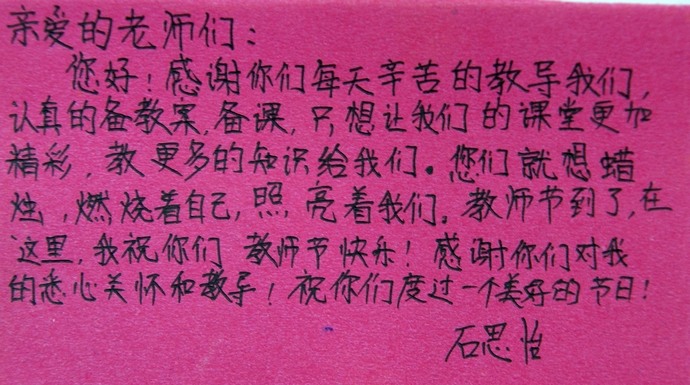 亲爱的老师们：
您好！感谢你们每天辛苦的教导我们，
认真的备教案，备课，只想让我们的课堂更加
精彩，教更多的知识给我们。您们就想蜡
烛，燃烧着自己，照亮着我们。教师节到了，在
这里，我祝你们 教师节快乐！感谢你们对我
的悉心关怀和教导！祝你们度过一个美好的节日！
石思怡